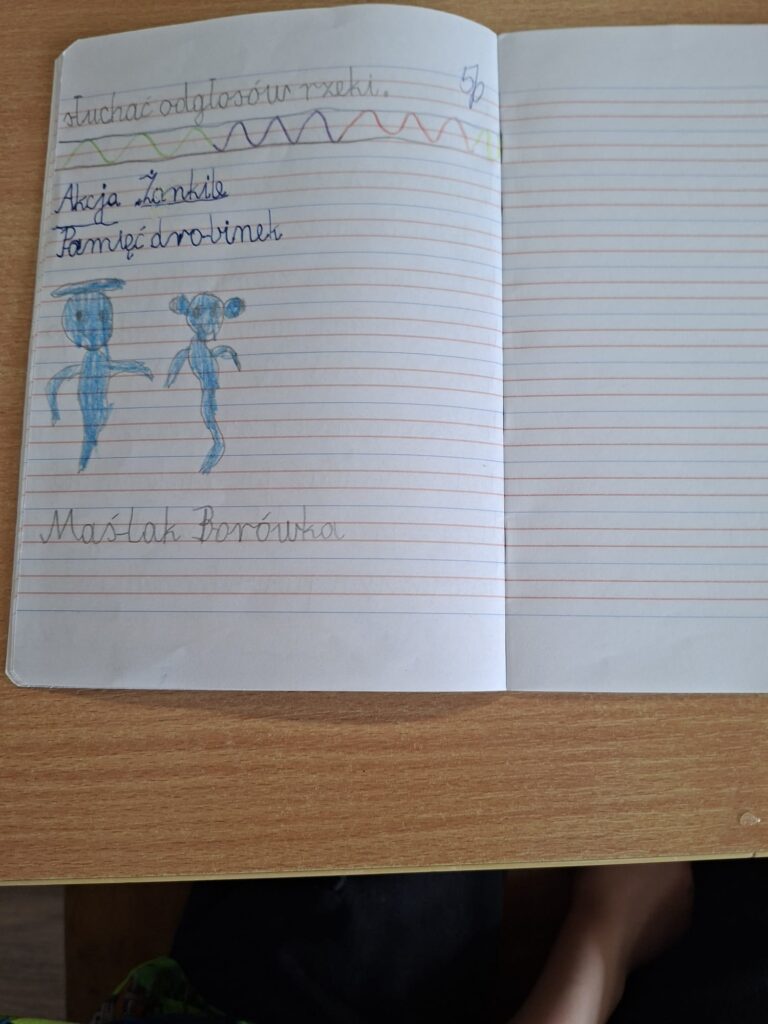 słuchać odgłosów rzeki. 5p
Akcja Żonkile
Pamięć drobinek
Maślak Borówka